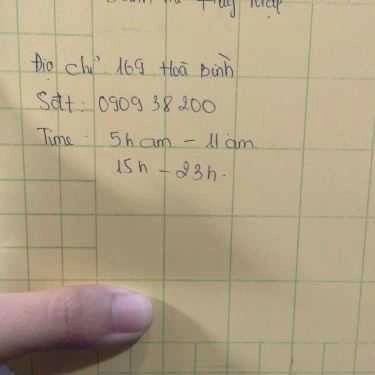 Địa chỉ: 169 Hoà Bình
Sđt: 0909 38 200
Time: 5h am - 11 am
15h - 23h.